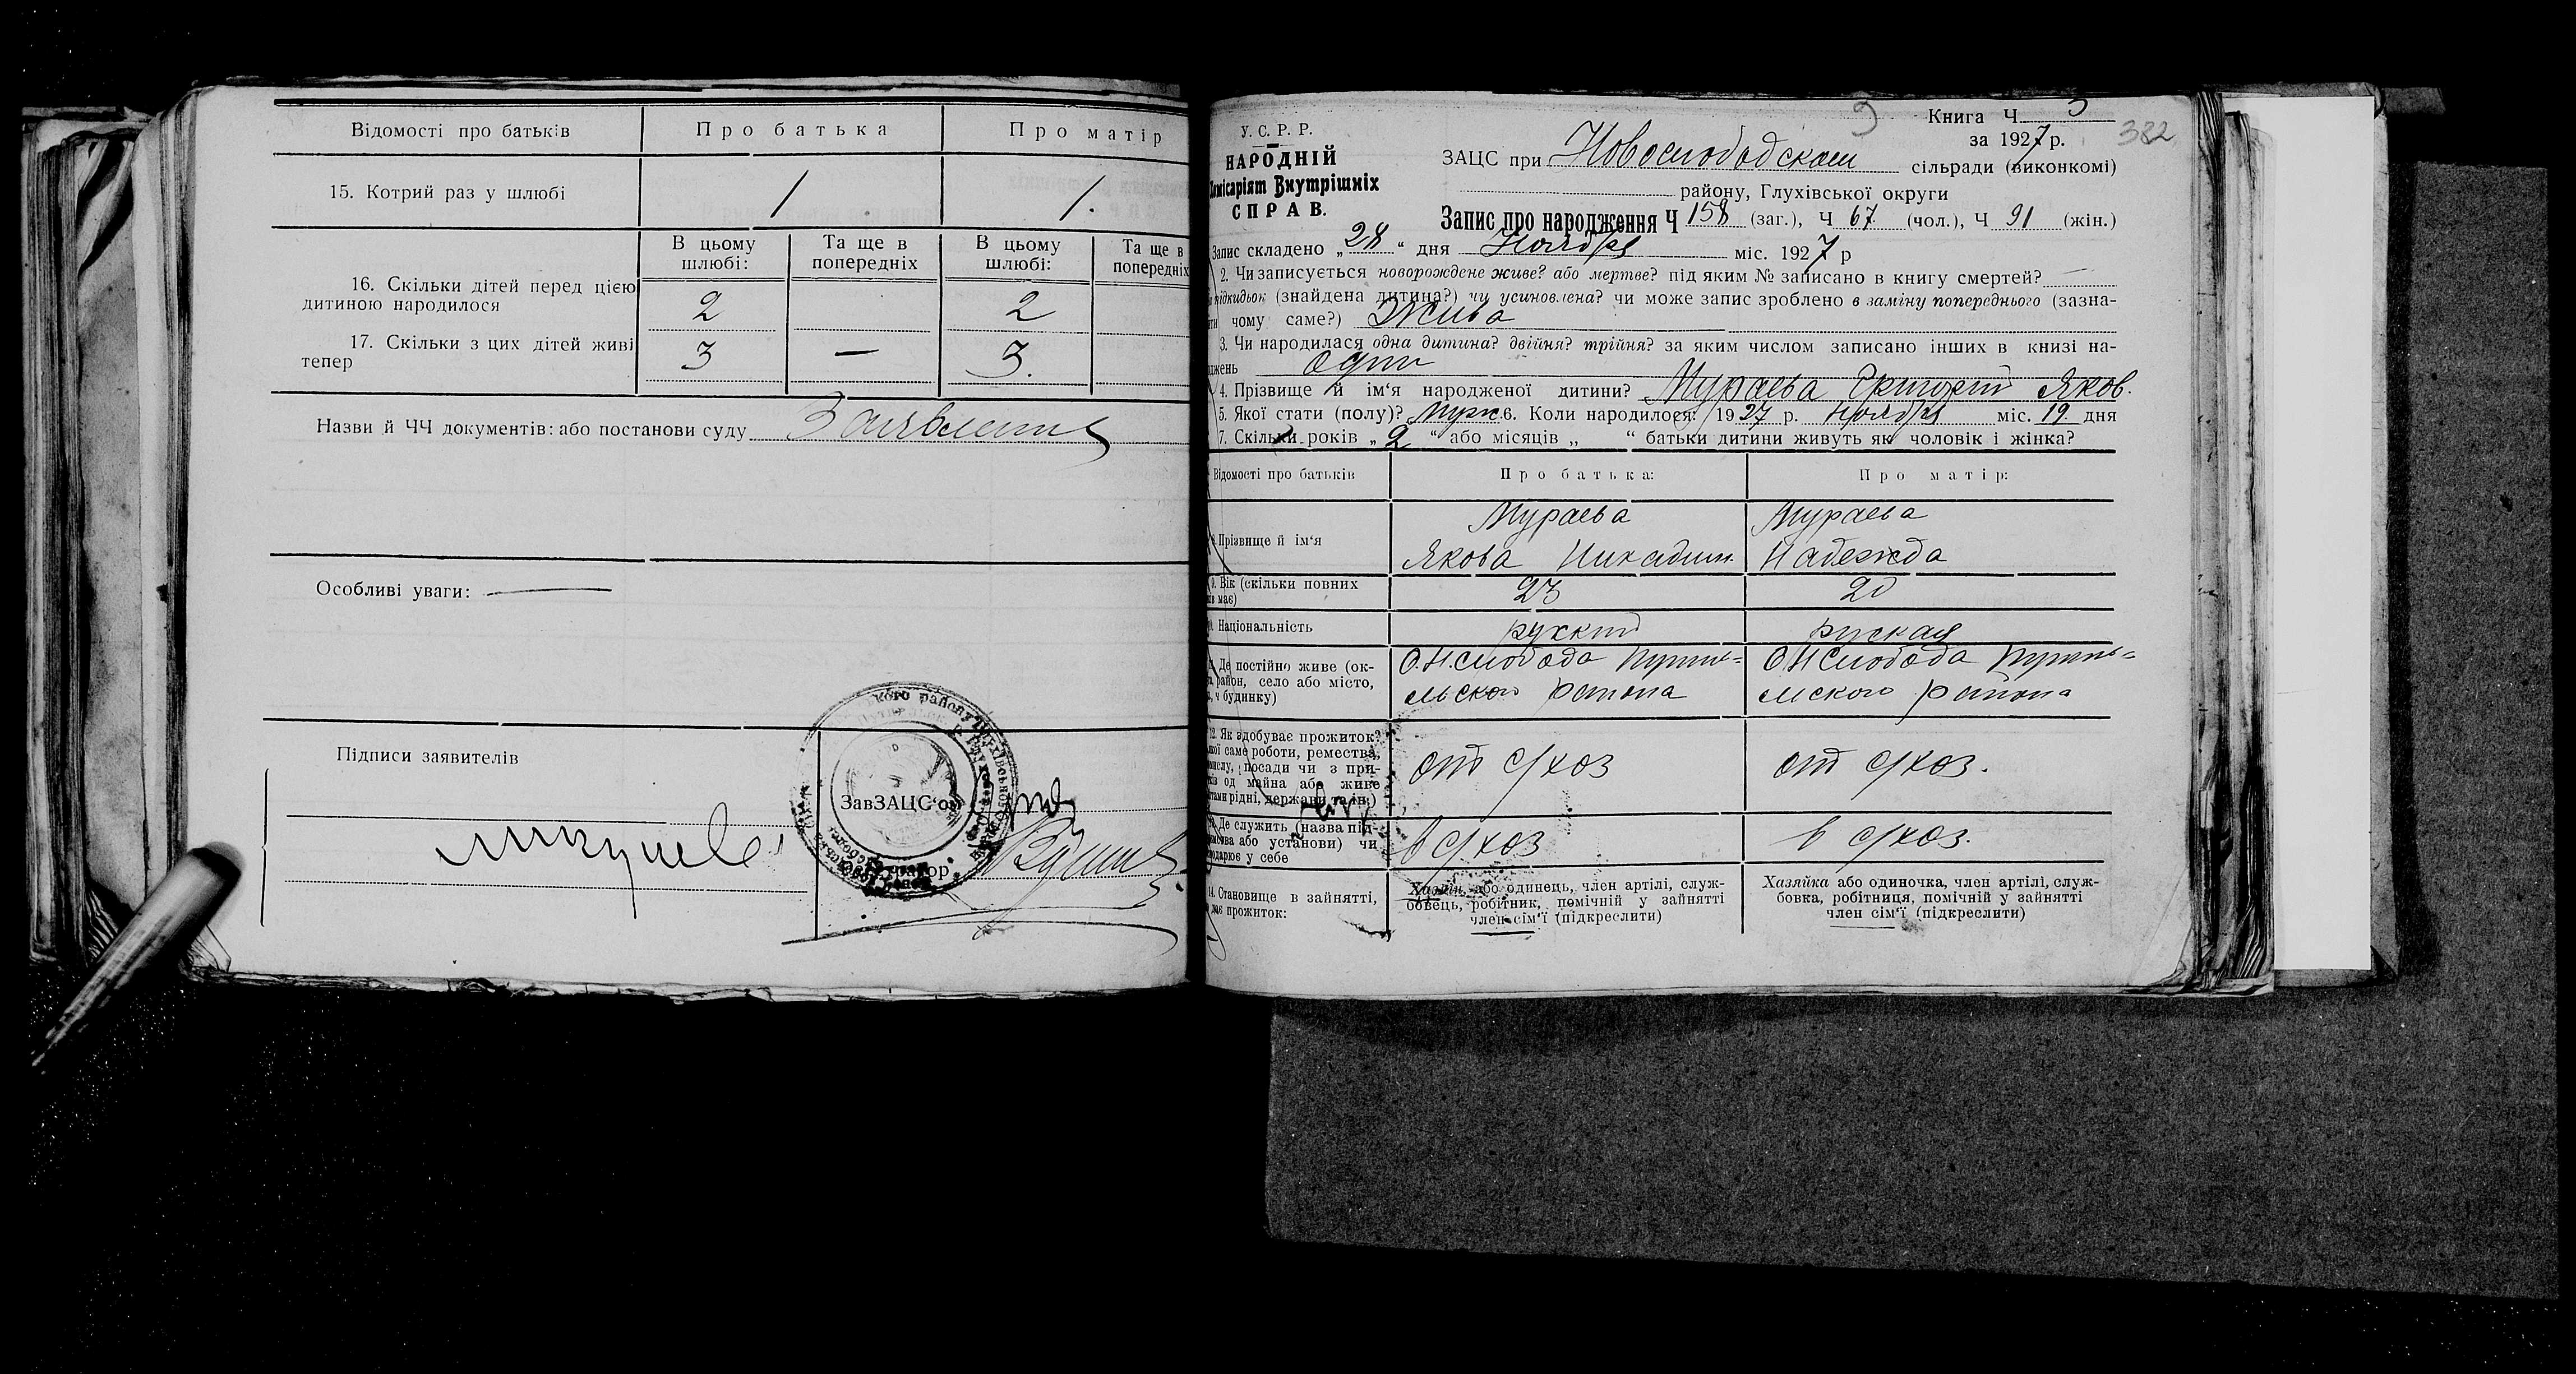 Відомості про батьків
Про батька
Про матір
15. Котрий раз у шлюбі
1
1.
В цьому шлюбі:
Та ще в попередніх
В цьому шлюбі:
Та ще в попередніх
16. Скільки дітей перед цією
дитиною народилося
2
2
17. Скільки з цих дітей живі
тепер
3
—
3.
Назви й ЧЧ документів: або постанови суду
Особливі уваги: —
Підписи заявителів
ЗавЗАЦС'ом
У. С. Р. Р.
НАРОДНІЙ
Комісаріят Внутрішніх
СПРАВ.
Книга Ч 3
за 1927 р.
382
ЗАЦС при Новослободском сільради (виконкомі)
району, Глухівської округи
Запис про народження Ч 158 (заг.), Ч 67 (чол.), Ч 91 (жін.)
Запис складено „28" дня Ноября міс. 1927 р
2. Чи записується новорождене живе? або мертве? під яким № записано в книгу смертей? —
підкидьок (знайдена дитина?) чи усиновлена? чи може запис зроблено в заміну попереднього (зазна-
чому саме?) Жива
3. Чи народилася одна дитина? двійня? трійня? за яким числом записано інших в книзі на-
один
4. Прізвище й ім'я народженої дитини? Мураева Григорий Яков.
5. Якої стати (полу)? Муж. 6. Коли народилося: 1927 р. Ноября міс. 19 дня
7. Скільки років „2" або місяців „ " батьки дитини живуть як чоловік і жінка?
Відомості про батьків
Про батька:
Про матір:
Прізвище й ім'я
Мураева
Якова Никадим.
Мураева
Надежда
9. Вік (скільки повних
має)
23
20
Національність
руский
руская
Де постійно живе (ок-
район, село або місто,
ч будинку)
С. Н. слобода Путив=
льского района
С. Н Слобода Путив=
льского района
12. Як здобуває прожиток?
якої саме роботи, ремества,
посади чи з при-
од майна або живе
рідні, держави та ін.)
от с/хоз
от с/хоз.
Де служить (назва під-
або установи) чи
у себе
в с/хоз
в с/хоз.
14. Становище в зайнятті,
прожиток:
Хазяїн, або одинець, член артілі, служ-
бовець, робітник, помічній у зайнятті
член сім'ї (підкреслити)
Хазяйка або одиночка, член артілі, служ-
бовка, робітниця, помічній у зайнятті
член сім'ї (підкреслити)